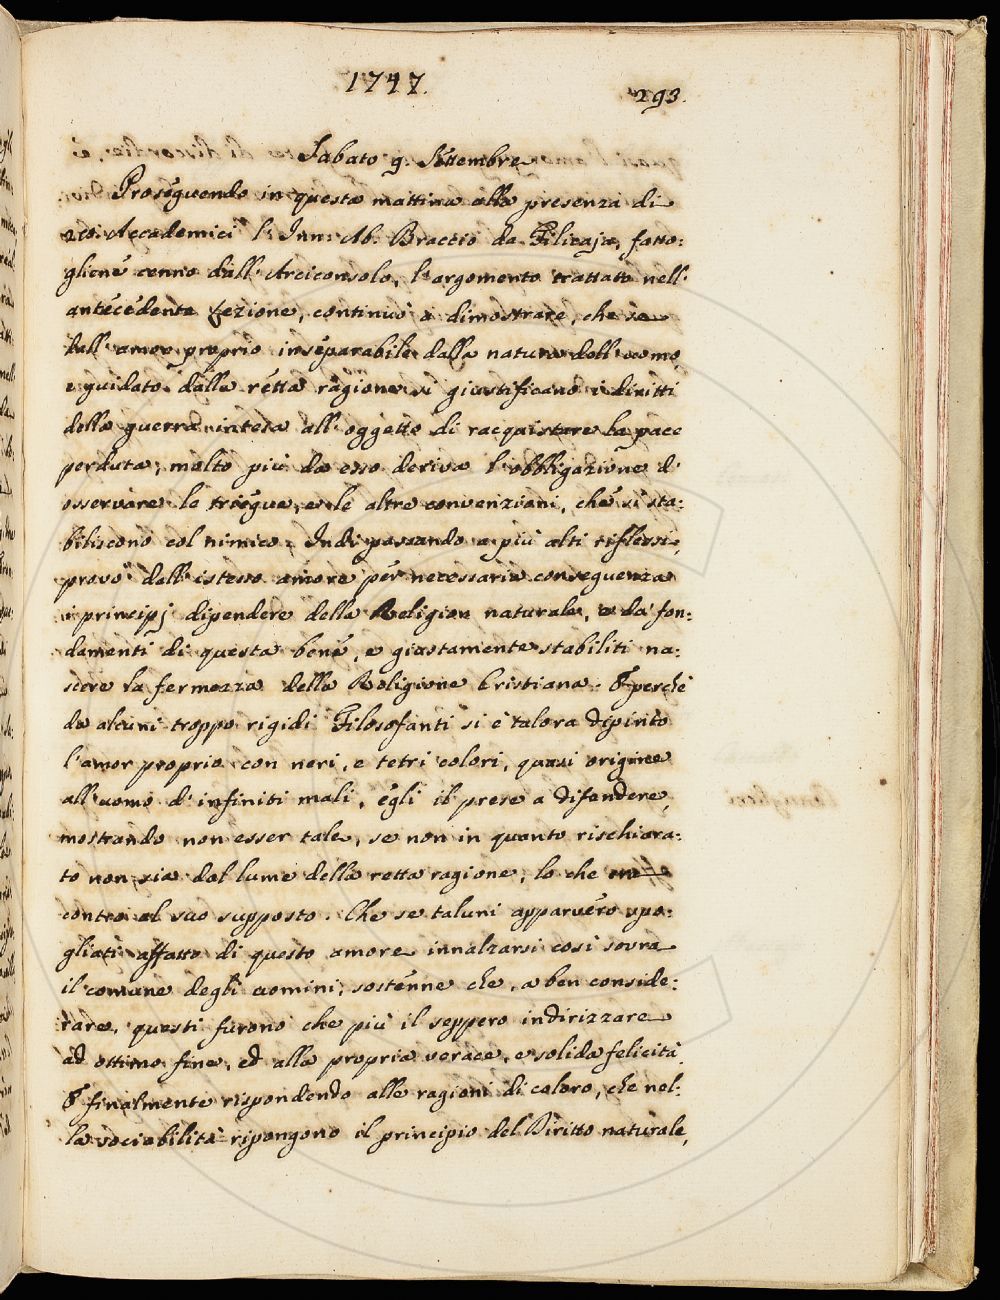 1747.
293.
Sabato 9. Settembre
Proseguendo in questa mattina alla presenza di
20. Accademici l'Inn: Ab. Braccio da Filicaja, fatto:
gliene cenno dall'Arciconsolo, l'argomento trattato nell'
antecedente Lezione, continuò a dimostrare, che se
dall'amor proprio inseparabile dalla natura dell'uomo
e guidato dalla retta ragione si giustificano i diritti
della guerra intesa all'oggetto di racquistare la pace
perduta; molto più da esso deriva l'obbligazione d'
osservare le triegue, e le altre convenzioni, che si sta:
biliscono col nimico; Indi passando a più alti riflessi,
provò dall'istesso amore per necessaria conseguenza
i principj dipendere della Religion naturale, e da' fon:
damenti di questa bene, e giustamente stabiliti na:
scere la fermezza della Religione Cristiana. E perchè
da alcuni troppo rigidi Filosofanti si è talora dipinto
l'amor proprio con neri, e tetri colori, quasi origine
all'uomo d'infiniti mali, egli il prese a difendere,
mostrando non esser tale, se non in quanto rischiara:
to non sia dal lume della retta ragione; lo che era
contro al suo supposto. Che se taluni apparvero spo:
gliati affatto di questo amore innalzarsi così sovra
il comune degli uomini; sostenne che, a ben conside:
rare, questi furono che più il seppero indirizzare
ad ottimo fine, ed alla propria verace, e solida felicità.
E finalmente rispondendo alle ragioni di coloro, che nel:
la sociabilità ripongono il principio del Diritto naturale,